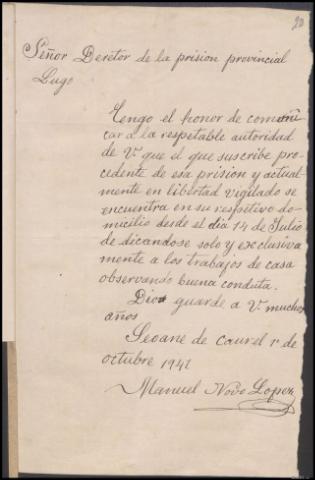 20
Señor Deretor de la prision provincial
Lugo
Tengo el honor de comuni
car a la respetable autoridad
de V. que el que suscribe pro-
cedente de esa prision y actual-
mente en libertad vigilado se
encuentra en su respitivo do-
micilio desde el dia 14 de Julio
de dicandose solo y exclusiva
mente a los trabajos de casa
observando buena conduta.
Dios guarde a V. muchos
años
Seoane de Caurel 1º de
octubre 1941
Manuel Novo Lopez